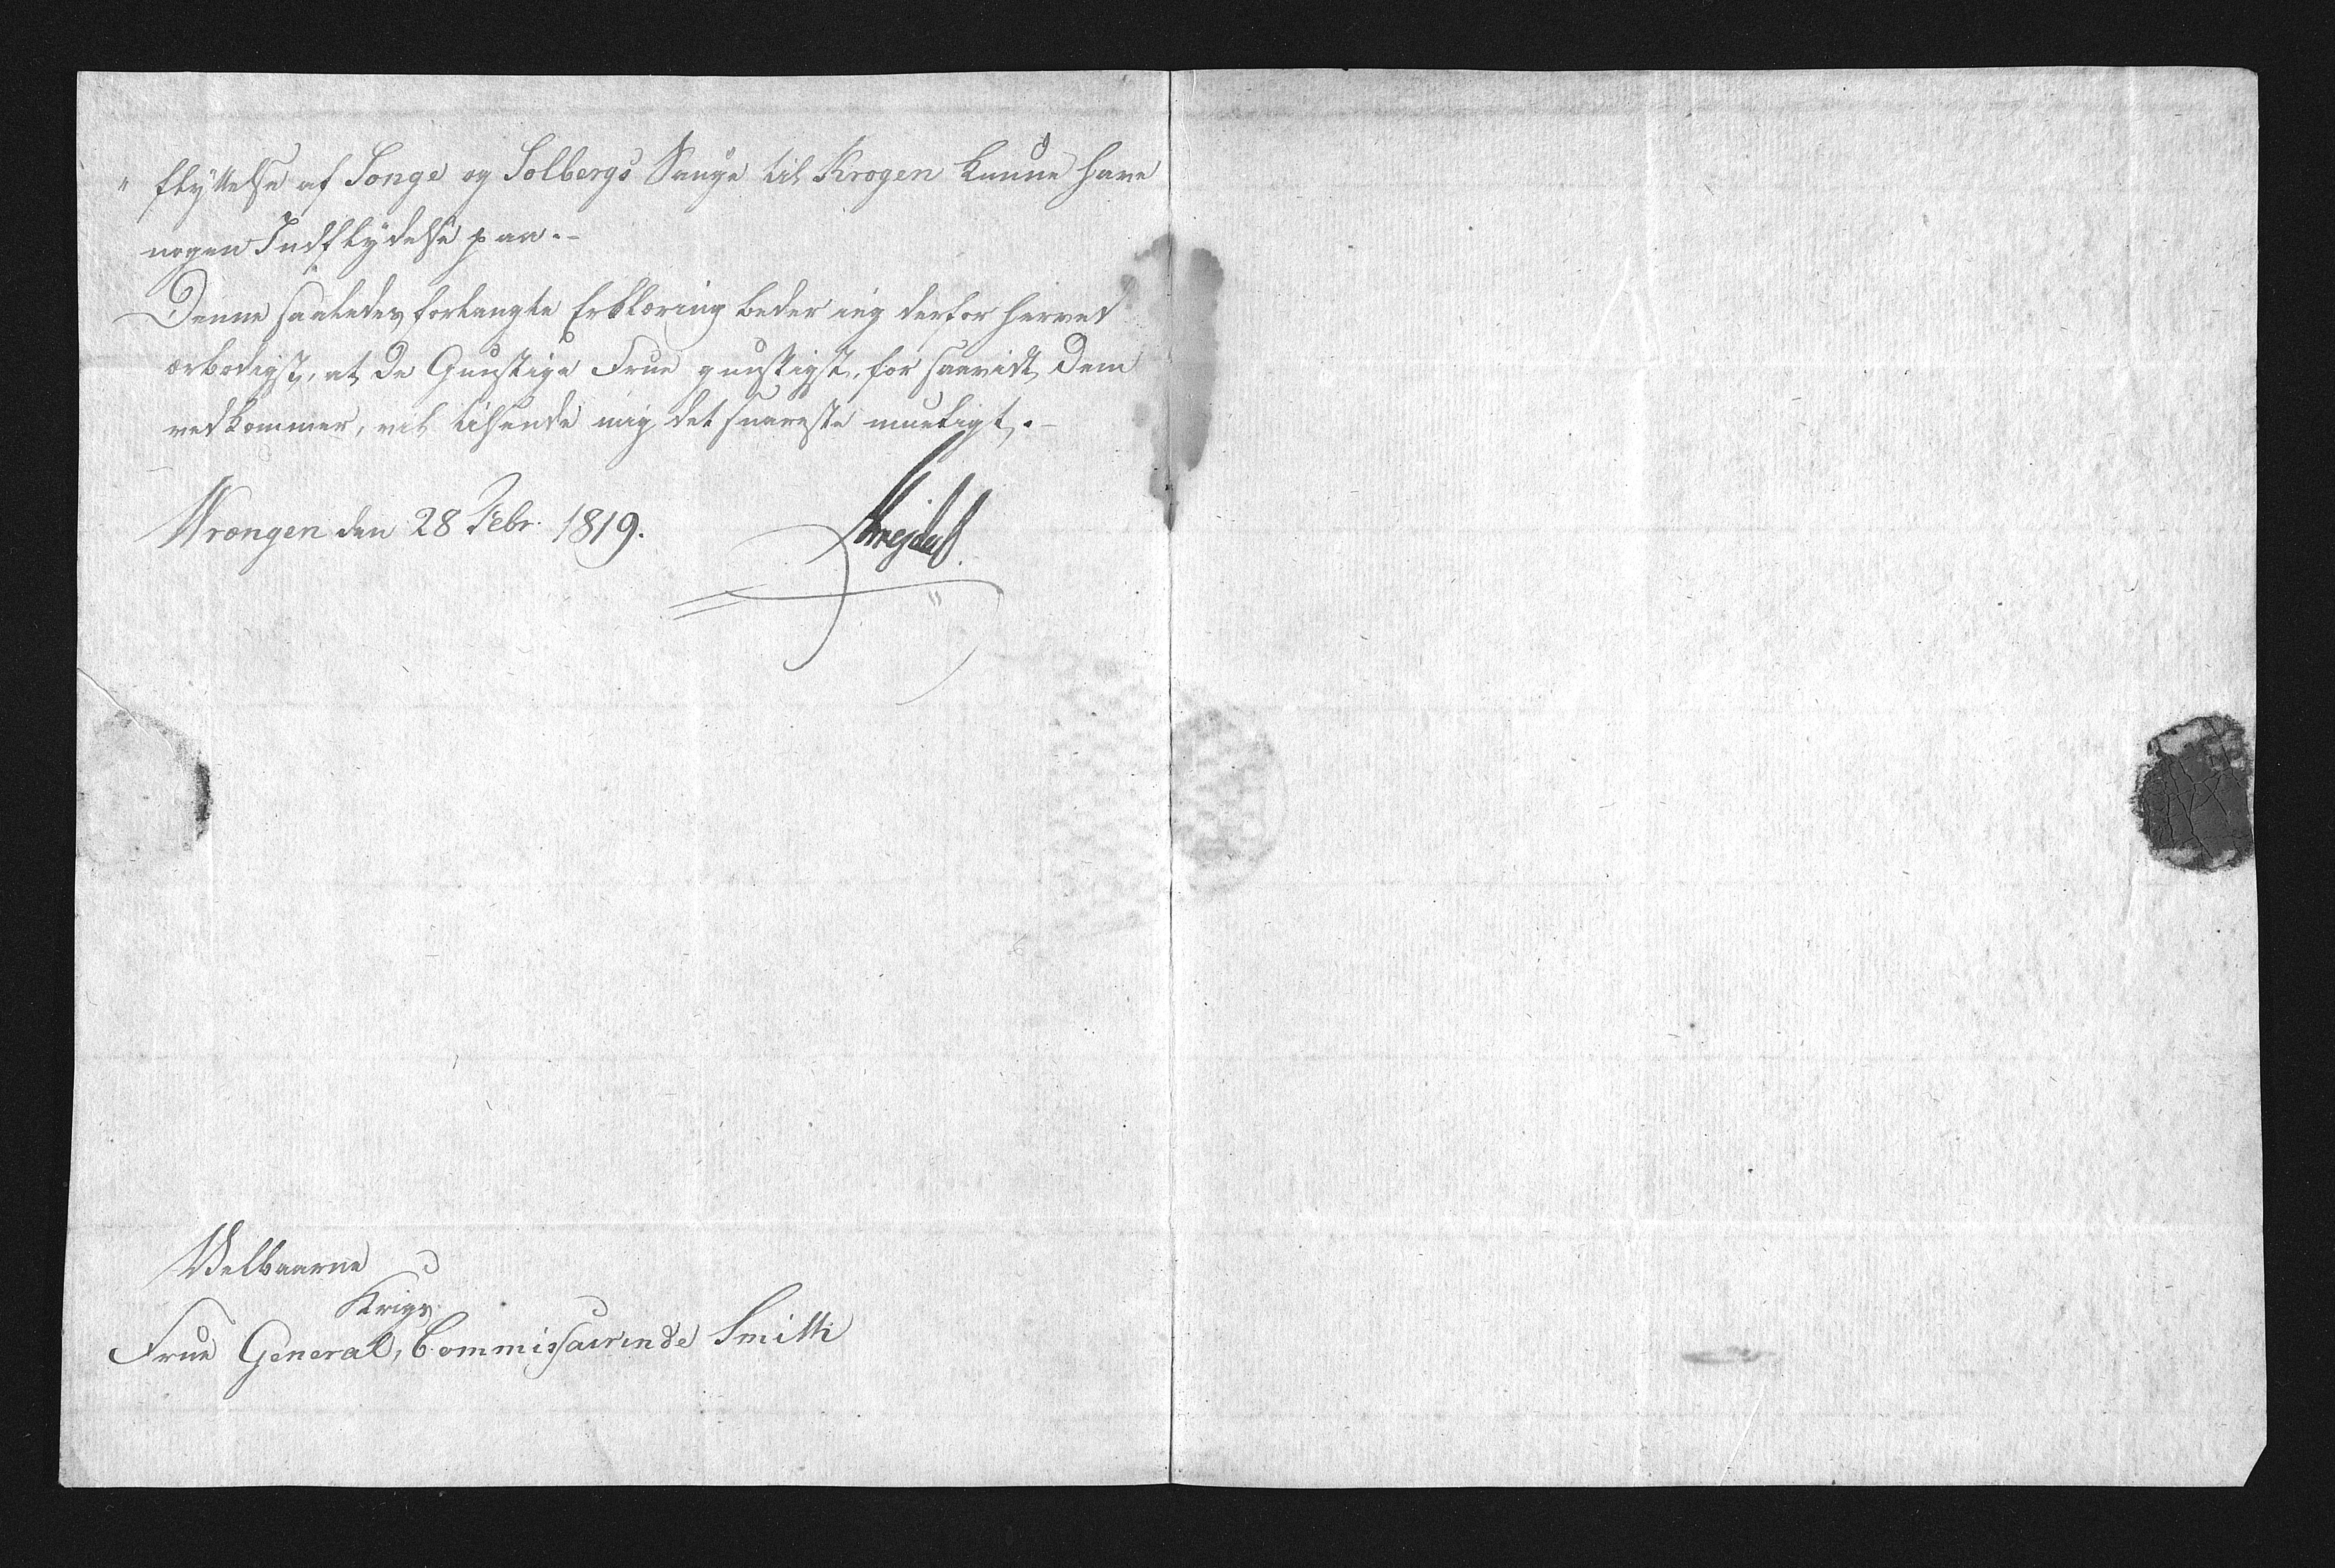 " flyttelse af Songe og Solbergs Sauge til Krogen kunne have
nogen Indflydelse paa.-
Denne saaledes forlangte Erklæring beder jeg derfor herved
ærbødigst, at De Gunstige Frue gunstigst, for saavidt Dem
vedkommer, vil tilsende mig det snareste mueligt.-
Wrængen den 28 Febr. 1819.
Velbaarne
Krigs
Frue General, Commissairinde Smith